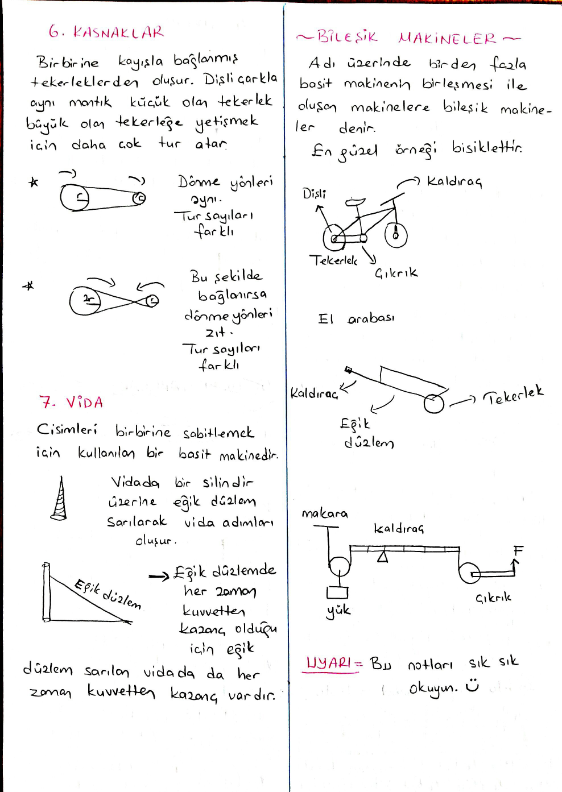 6. KASNAKLAR
Birbirine kayışla bağlanmış
tekerleklerden oluşur. Dişli çarkla
aynı mantık küçük olan tekerlek
büyük olan tekerleğe yetişmek
için daha çok tur atar.
* Dönme yönleri
aynı.
Tur sayıları
farklı
2r
r
* Bu şekilde
bağlanırsa
dönme yönleri
zıt.
Tur sayıları
farklı
7. VİDA
Cisimleri birbirine sabitlemek
için kullanılan bir basit makinedir.
Vidada bir silindir
üzerine eğik düzlem
sarılarak vida adımları
oluşur.
Eğik düzlem
→ Eğik düzlemde
her zaman
kuvvetten
kazanç olduğu
için eğik
düzlem sarılan vidada da her
zaman kuvvetten kazanç vardır.
~BİLEŞİK MAKİNELER~
Adı üzerinde birden fazla
basit makinenin birleşmesi ile
oluşan makinelere bileşik makine-
ler denir.
En güzel örneği bisiklettir.
Kaldıraç
Dişli
Tekerlek
Çıkrık
El arabası
Kaldıraç
Tekerlek
Eğik
düzlem
makara
kaldıraç
F
yük
Çıkrık
UYARI = Bu notları sık sık
okuyun. ☺